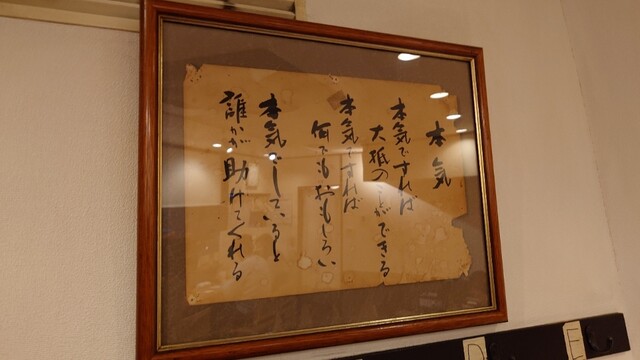 本気
本気ですれば
大抵のことができる
本気ですれば
何でもおもしろい
本気でしていると
誰かが助けてくれる
D E